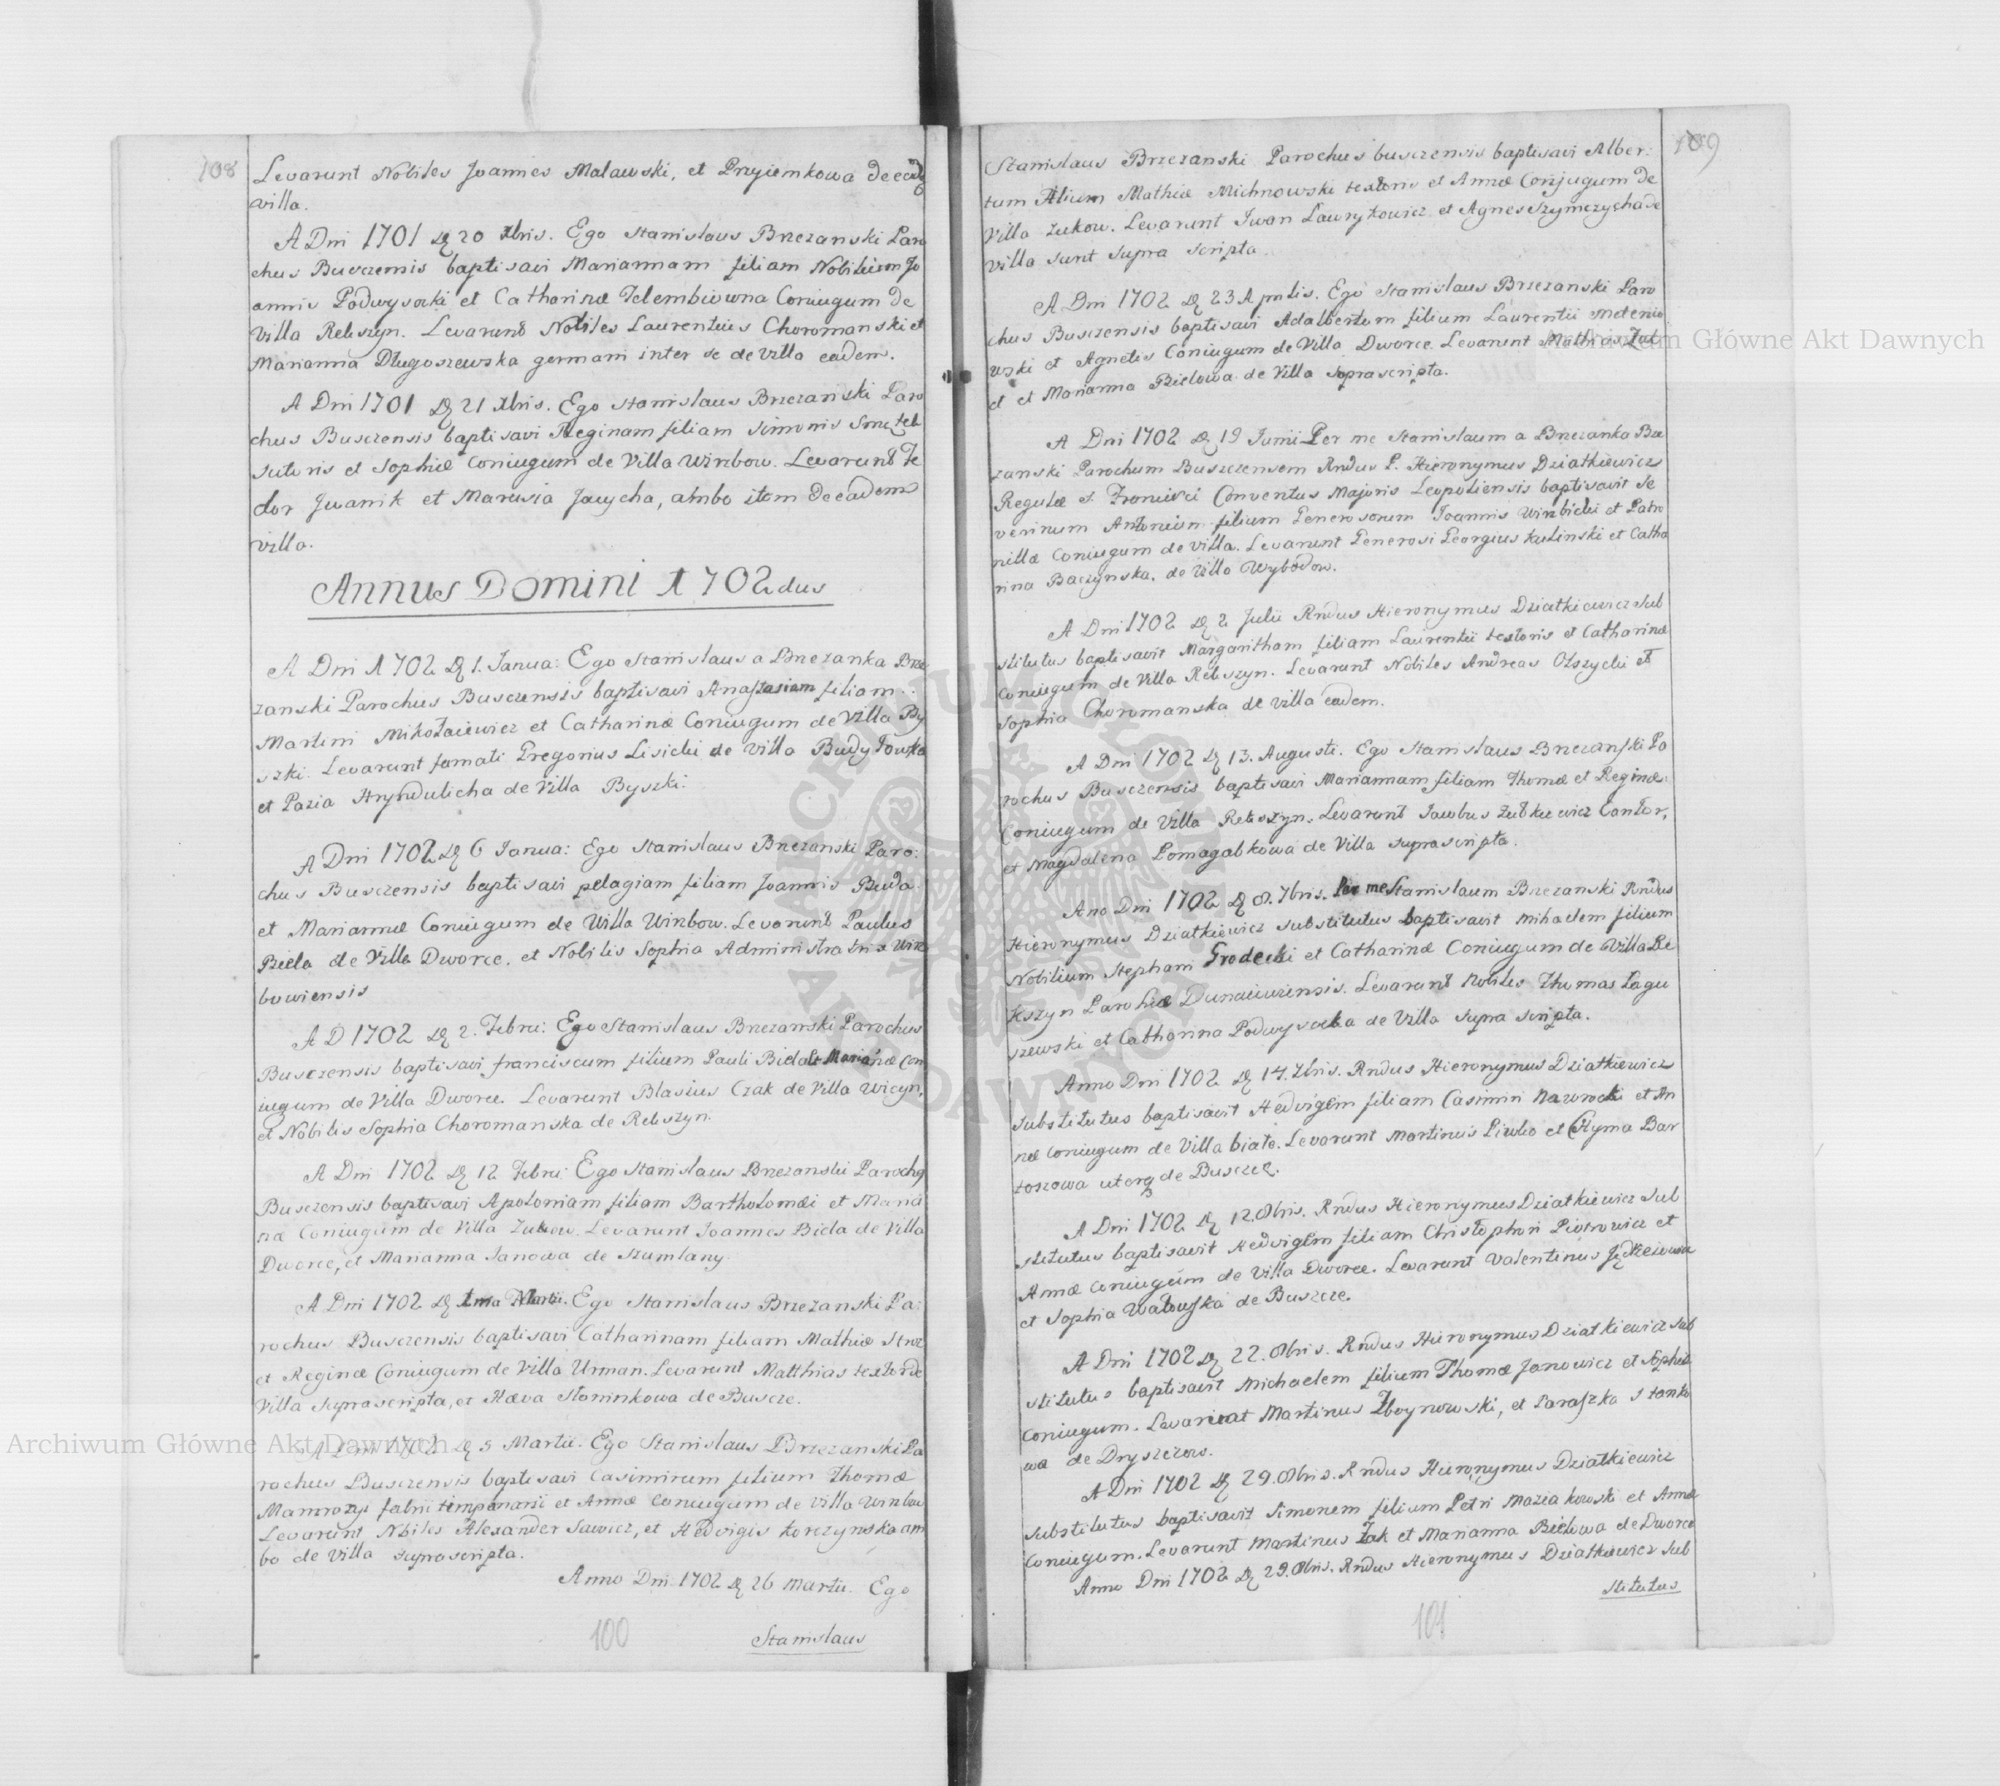 108
Levarunt Nobiles Joannes Malawski, et Pryiemkowa de eadē
villa.
A Dni 1701 Dę 20 Xbris. Ego Stanislaus Brzezanski Paro
chus Busczensis baptisavi Mariannam filiam Nobilium Jo
annis Podwysocki et Catharinæ Telembiowna Coniugum de
Villa Rekszyn. Levarunt Nobiles Laurentius Choromanski et
Marianna Długoszewska germani inter se de Villa eadem.
A Dni 1701 Dę 21 Xbris. Ego Stanislaus Brzezanski Paro
chus Busczensis baptisavi Reginam filiam Simonis
Sutoris et Sophiæ Coniugum de Villa Wirzbow. Levarunt Fe
dor Jwanik et Marusia Jacycha, ambo item de eadem
villa.
Annus Domini 1702dus
A Dni 1702 Dę 1. Janua: Ego Stanislaus a Brzezanka Brze
zanski Parochus Busczensis baptisavi Anastasiam filiam
Martini Mikołaiewicz et Catharinæ Coniugum de Villa By
szki. Levarunt famati Gregorius Lisicki de Villa Budyłowka
et Pazia Hryndulicha de Villa Byszki.
A Dni 1702 Dę 6 Janua: Ego Stanislaus Brzezanski Paro:
chus Busczensis baptisavi pelagiam filiam Joannis Buda
et Mariannæ Coniugum de Villa Wirzbow. Levarunt Paulus
Biela de Villa Dworce, et Nobilis Sophia Administratrix Wirz
bowiensis
A D 1702 Dę 2. Febru: Ego Stanislaus Brzezanski Parochus
Busczensis baptisavi franciscum filium Pauli Biela et Mariañæ Con
iugum de Villa Dworce. Levarunt Blasius Czak de Villa Wicyn,
et Nobilis Sophia Choromanska de Rekszyn.
A Dni 1702 Dę 12 Febru: Ego Stanislaus Brzezanski Parochq
Busczensis baptisavi Apoloniam filiam Bartholomæi et Marian
næ Coniugum de Villa Zukow. Levarunt Joannes Biela de Villa
Dworce, et Marianna Janowa de Szumlany.
A Dni 1702 Dę 1ma Martii. Ego Stanislaus Brzezanski Pa:
rochus Busczensis baptisavi Catharinam filiam Mathiæ
et Reginæ Coniugum de Villa Urman. Levarunt Matthias textor de
Villa Suprascripta, et Hæva Słoninkowa de Buscze.
A Dni 1702 Dę 5 Martii. Ego Stanislaus Brzezanski Pa
rochus Busczensis baptisavi Casimirum filium Thomæ
fabri et Annæ Coniugum de Villa Wirzbow
Levarunt Nobiles Alexander Sawicz, et Hedvigis Korczynska am
bo de Villa suprascripta.
Anno Dni 1702 Dę 26 Martii. Ego
Stanislaus
100
109
Stanislaus Brzezanski Parochus busczensis baptisavi Alber:
tum filium Mathiæ Michnowski textoris et Annæ Conjugum de
Villa Zukow. Levarunt Iwan Lawrykowicz et Agnes Szymczycha de
Villa sunt Supra scripta.
A Dni 1702 Dę 23 Aprilis. Ego Stanislaus Brzezanski Paro
chus Busczensis baptisavi Adalbertum filium Laurentii
wski et Agnetis Coniugum de Villa Dworce. Levarunt Mathias
et Marianna Bielowa de Villa Suprascripta.
A Dni 1702 Dę 19 Junii Per me Stanislaum a Brzezanka Brze
zanski Parochum Busczensem Rndus P. Hieronymus Dziatkiewicz
Regulæ S. Francisci Conventus Majoris Leopoliensis baptisavit Se
verinum Antonium filium Generosorum Joannis Wirzbicki et Petro
nillæ Coniugum de Villa. Levarunt Generosi Georgius Kulinski et Catha
rina Baczynska, de Villa Wybodow.
A Dni 1702 Dę 2 Julii Rndus Hieronymus Dziatkiewicz Sub
stitutus baptisavit Margaritham filiam Laurentii textoris et Catharinæ
Coniugum de Villa Rekszyn. Levarunt Nobiles Andreas Olszycki et
Sophia Choromanska de villa eadem.
A Dni 1702 Dę 13. Augusti. Ego Stanislaus Brzezanski Pa
rochus Busczensis baptisavi Mariannam filiam Thomæ et Reginæ
Coniugum de Villa Rekszyn. Levarunt Jacobus Zubkiewicz Cantor,
et Magdalena Pomagabkowa de Villa suprascripta.
Ano Dni 1702 Dę 8. 7bris. Per me Stanislaum Brzezanski Rndus
Hieronymus Dziatkiewicz Substitutus baptisavit Mihaelem filium
Nobilium Stephani Grodecki et Catharinæ Coniugum de Villa Re
kszyn Parohiæ Dunaiowiensis. Levarunt Nobiles Thomas Łagu
szewski et Catharina Podwysocka de Villa Supra scripta.
Anno Dni 1702 Dę 14. 7bris. Rndus Hieronymus Dziatkiewicz
Substitutus baptisavit Hedvigem filiam Casimiri Nawrocki et An
næ Coniugum de Villa białe. Levarunt Martinus Piwko et Bar
toszowa uterq de Buscze.
A Dni 1702 Dę 12. 8bris. Rndus Hieronymus Dziatkiewicz Sub
stitutus baptisavit Hedvigem filiam Christophori Piotrowicz et
Annæ Coniugum de Villa Dworce. Levarunt Valentinus
et Sophia Walowska de Buszcze.
A Dni 1702 Dę 22. 8bris. Rndus Hieronymus Dziatkiewicz Sub
stitutus baptisavit Michaelem filium Thomæ Janowicz et Sophiæ
Coniugum. Levarunt Martinus Zboynowski, et Paraszka Stanko
wa de Dryszczow.
A Dni 1702 Dę 29. 8bris. Rndus Hieronymus Dziatkiewicz
Substitutus baptisavit Simonem filium Petri Maziakowski et Annæ
Coniugum. Levarunt Martinus Żak et Marianna Bielowa de Dworce
Anno Dni 1702 Dę 29. 8bris. Rndus Hieronymus Dziatkiewicz Sub
stitutus
101
Archiwum Główne Akt Dawnych
Archiwum Główne Akt Dawnych
ARCHIWUM GŁÓWNE AKT DAWNYCH